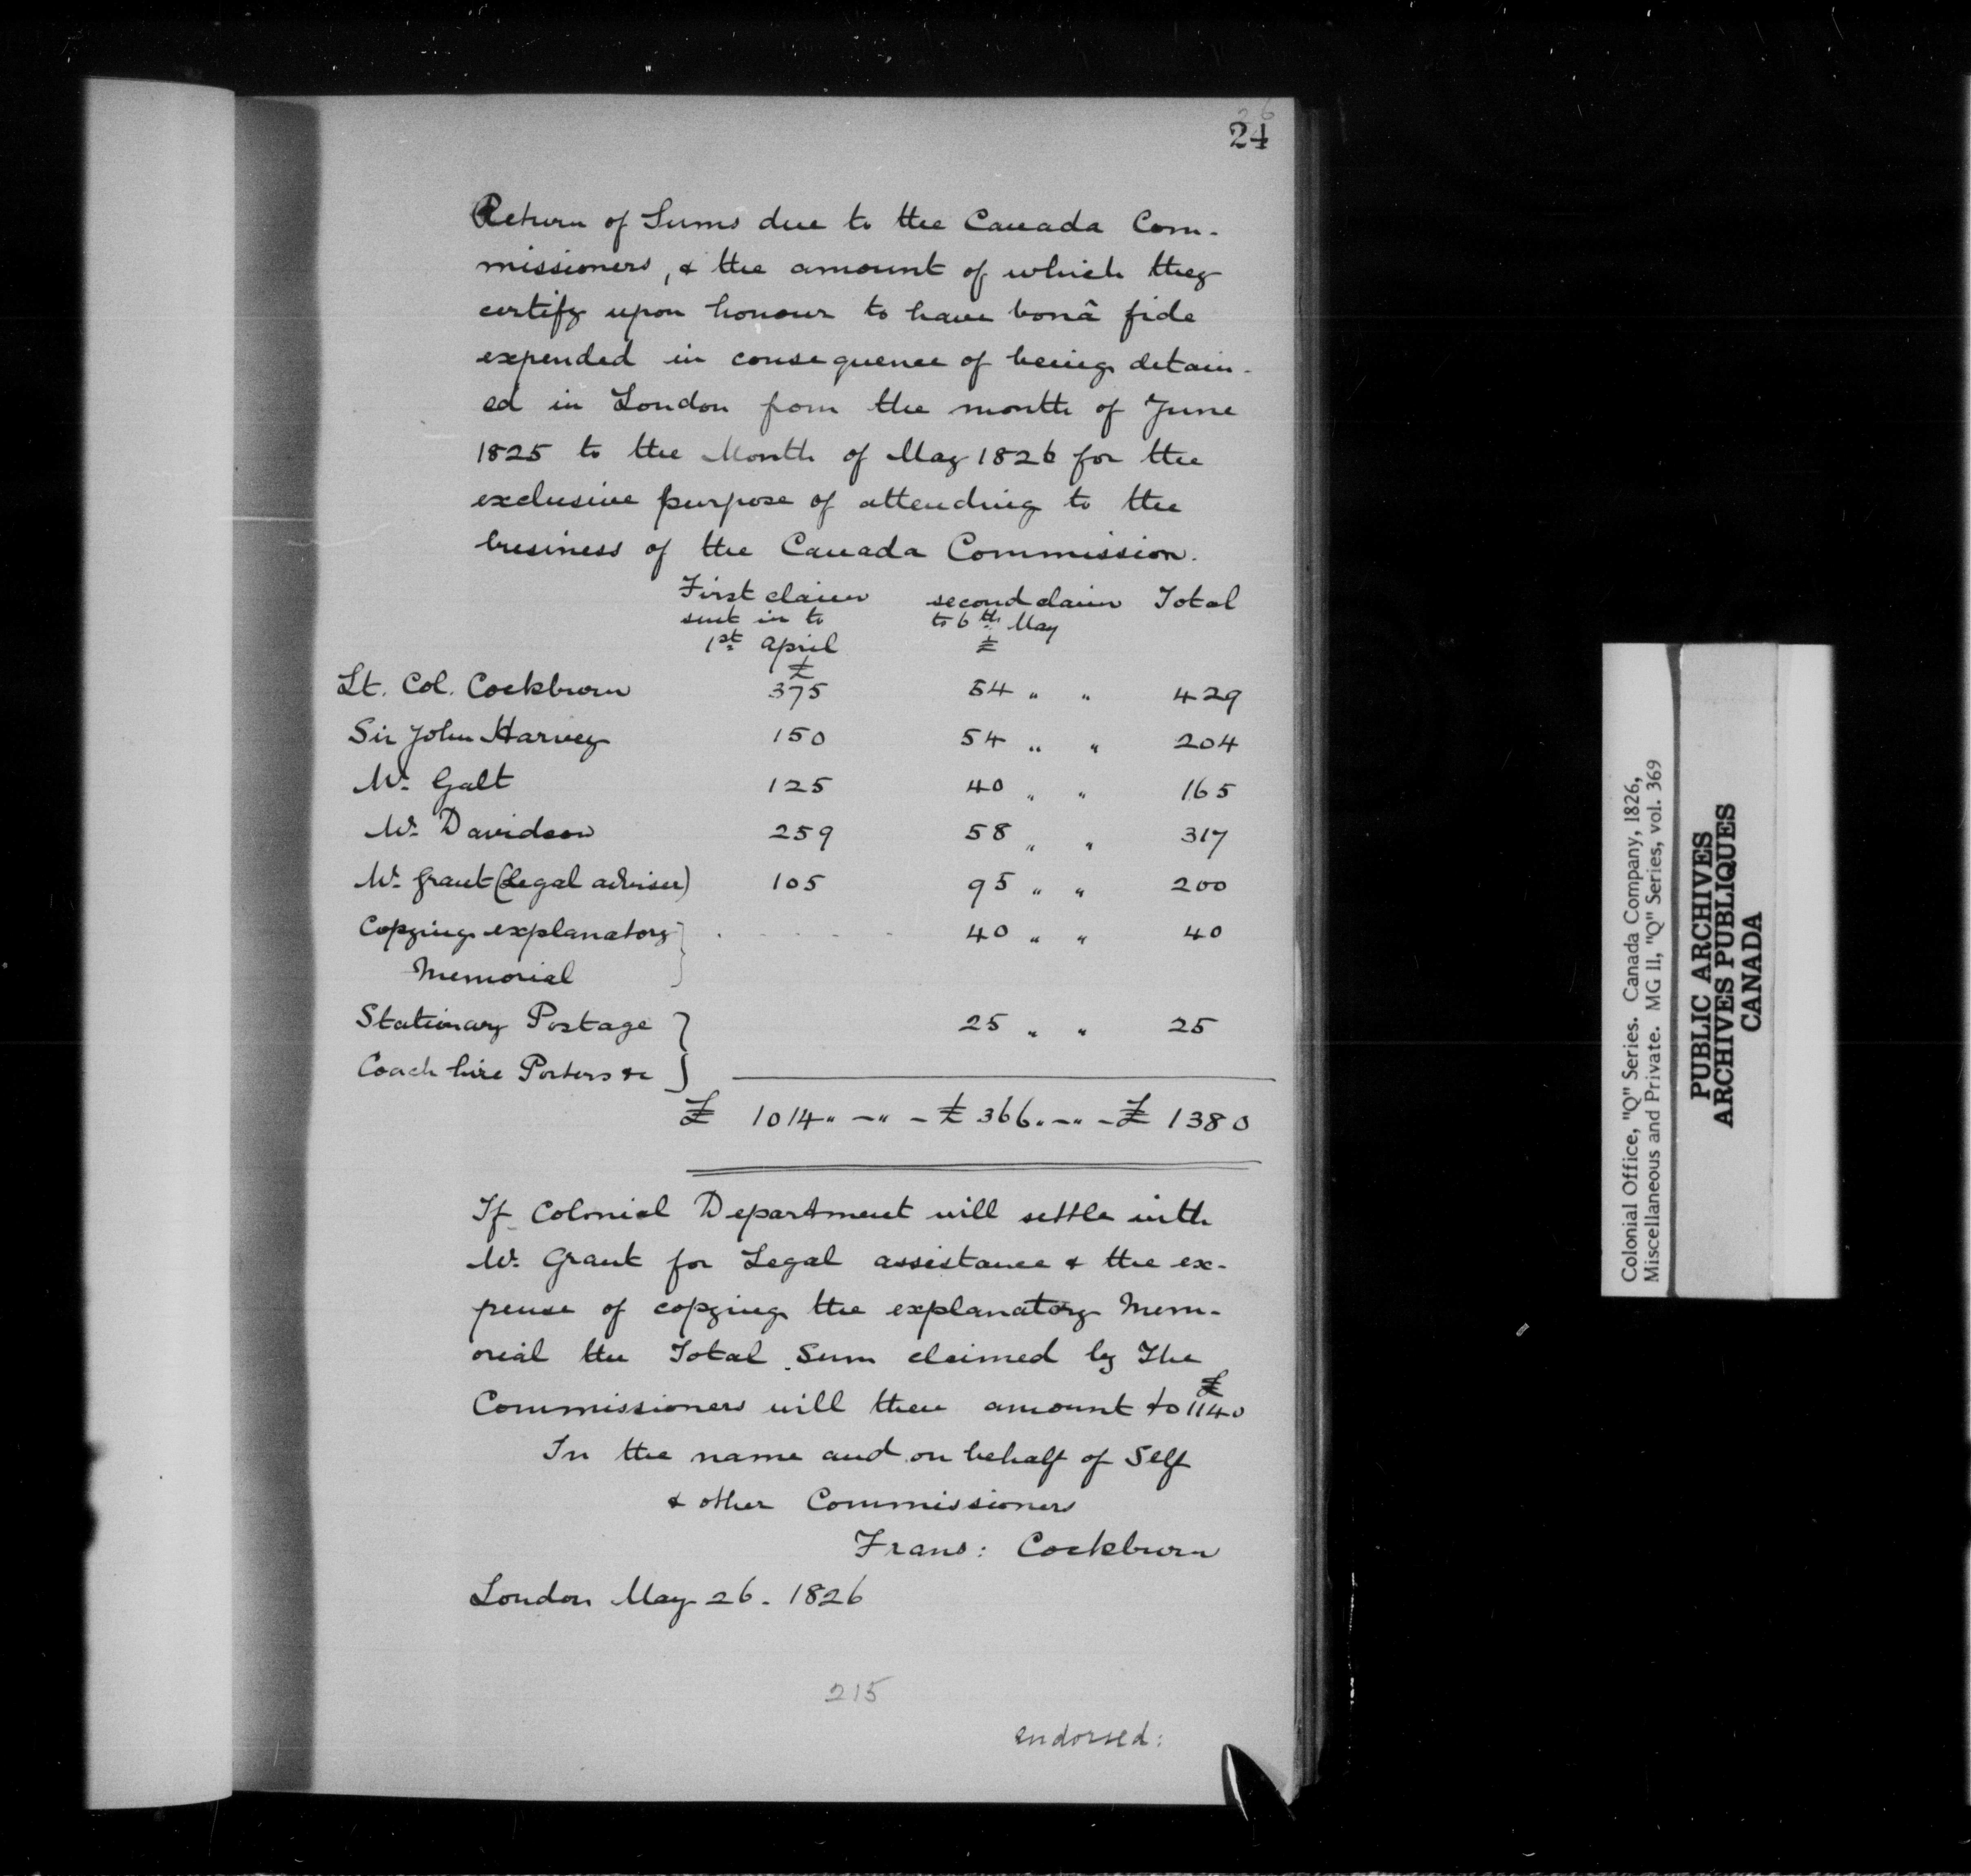 26
24
Return of Sums due to the Canada Com-
missioners, & the amount of which they
certify upon honour to have bonâ fide
expended in consequence of being detain-
ed in London from the month of June
1825 to the Month of May 1826 for the
exclusive purpose of attending to the
business of the Canada Commission.
First claim second claim Total
sent in to to 6th May
1st april £
£
Lt. Col. Cockburn 375 54 " " 429
Sir John Harvey 150 54 " " 204
Mr. Galt 125 40 " " 165
Mr. Davidson 259 58 " " 317
Mr. Grant (Legal adviser) 105 95 " " 200
Copying explanatory } . - - - - - 40 " " 40
Memorial
Stationary Postage } 25 " " 25
Coach hire Porters &c
£ 1014 " - " - £ 366 " - " - £ 1380
If Colonial Department will settle with
Mr. Grant for Legal assistance & the ex-
pense of copying the explanatory Mem-
orial the Total Sum claimed by The
Commissioners will then amount to £1140
In the name and on behalf of Self
& other Commissioners
Frans: Cockburn
London May 26. 1826
215
endorsed:
Colonial Office, "Q" Series. Canada Company, 1826,
Miscellaneous and Private. MG 11, "Q" Series, vol. 369
PUBLIC ARCHIVES
ARCHIVES PUBLIQUES
CANADA